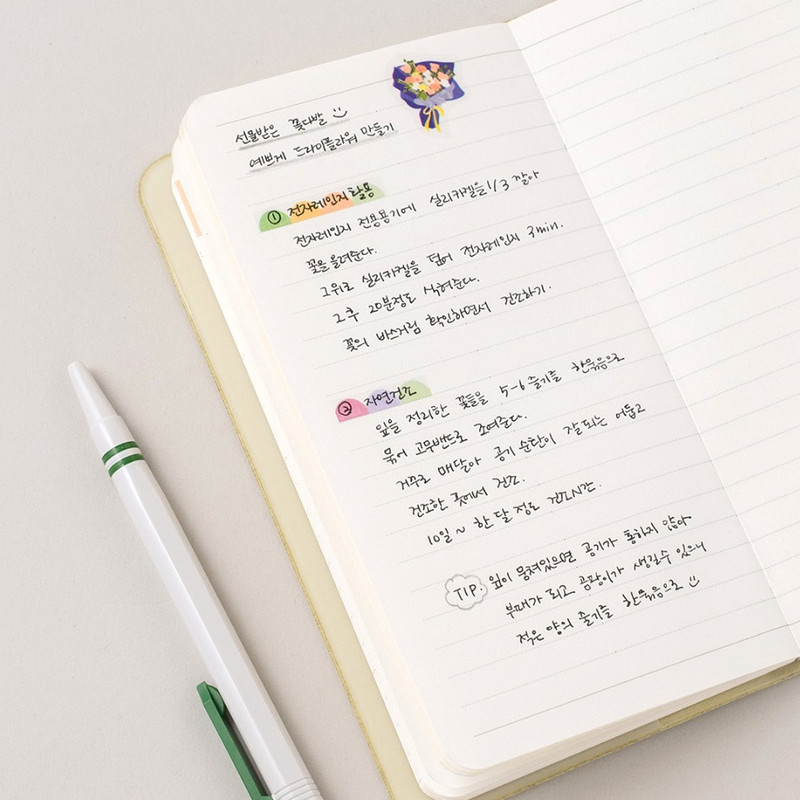 선물받은 꽃다발
예쁘게 드라이플라워 만들기
① 전자레인지 활용
전자레인지 전용용기에 실리카겔을 1/3 깔아
꽃을 올려준다.
그위로 실리카겔을 덮어 전자레인지 3min.
그 후 20분정도 식혀준다.
꽃의 바스거림 확인하면서 건조하기.
② 자연건조
잎을 정리한 꽃들을 5-6 줄기를 한묶음으로
묶어 고무밴드로 조여준다.
거꾸로 매달아 공기 순환이 잘되는 어둡고
건조한 곳에서 건조.
10일 ~ 한 달 정도 건조시간.
TIP. 잎이 뭉쳐있으면 공기가 통하지 않아
부패가 되고 곰팡이가 생길수 있으니
적은 양의 줄기를 한묶음으로